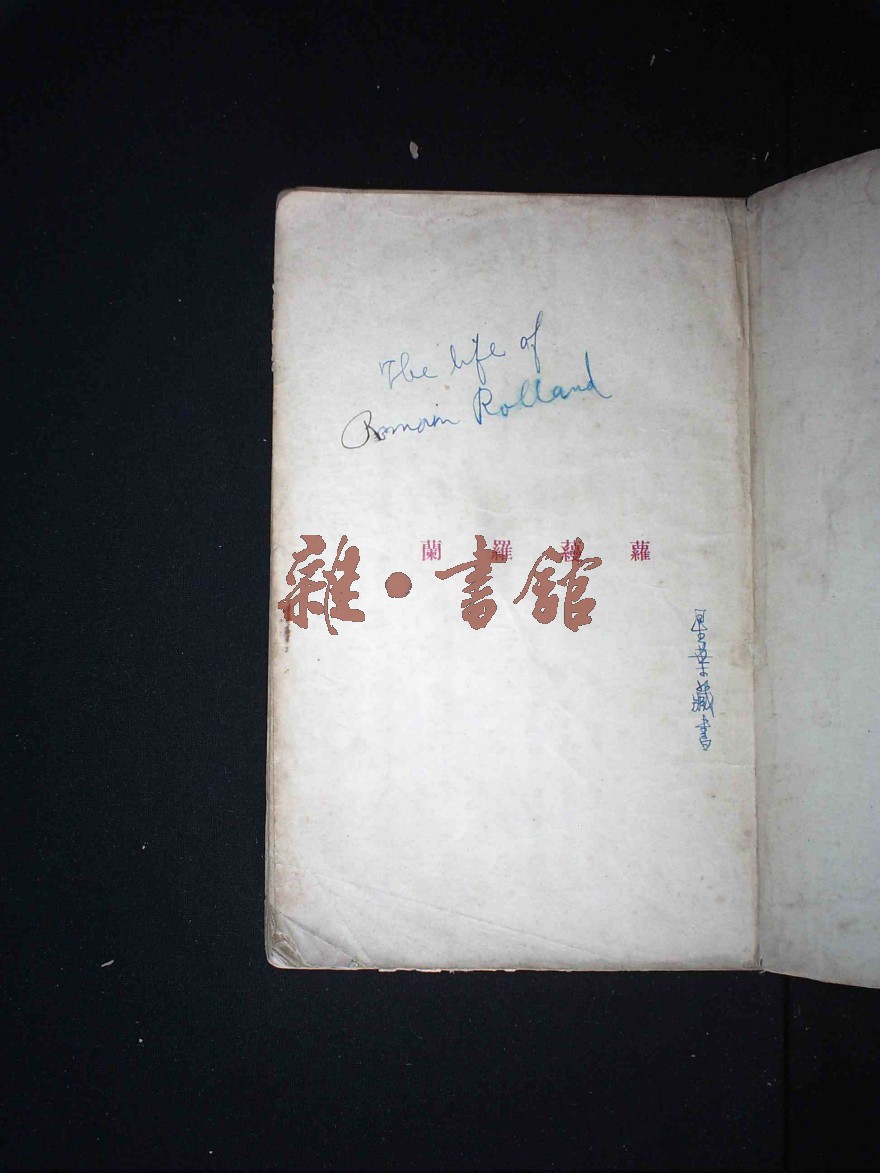 The life of
Romain Rolland
蘭羅蔓蘿
雜·書館
藏書